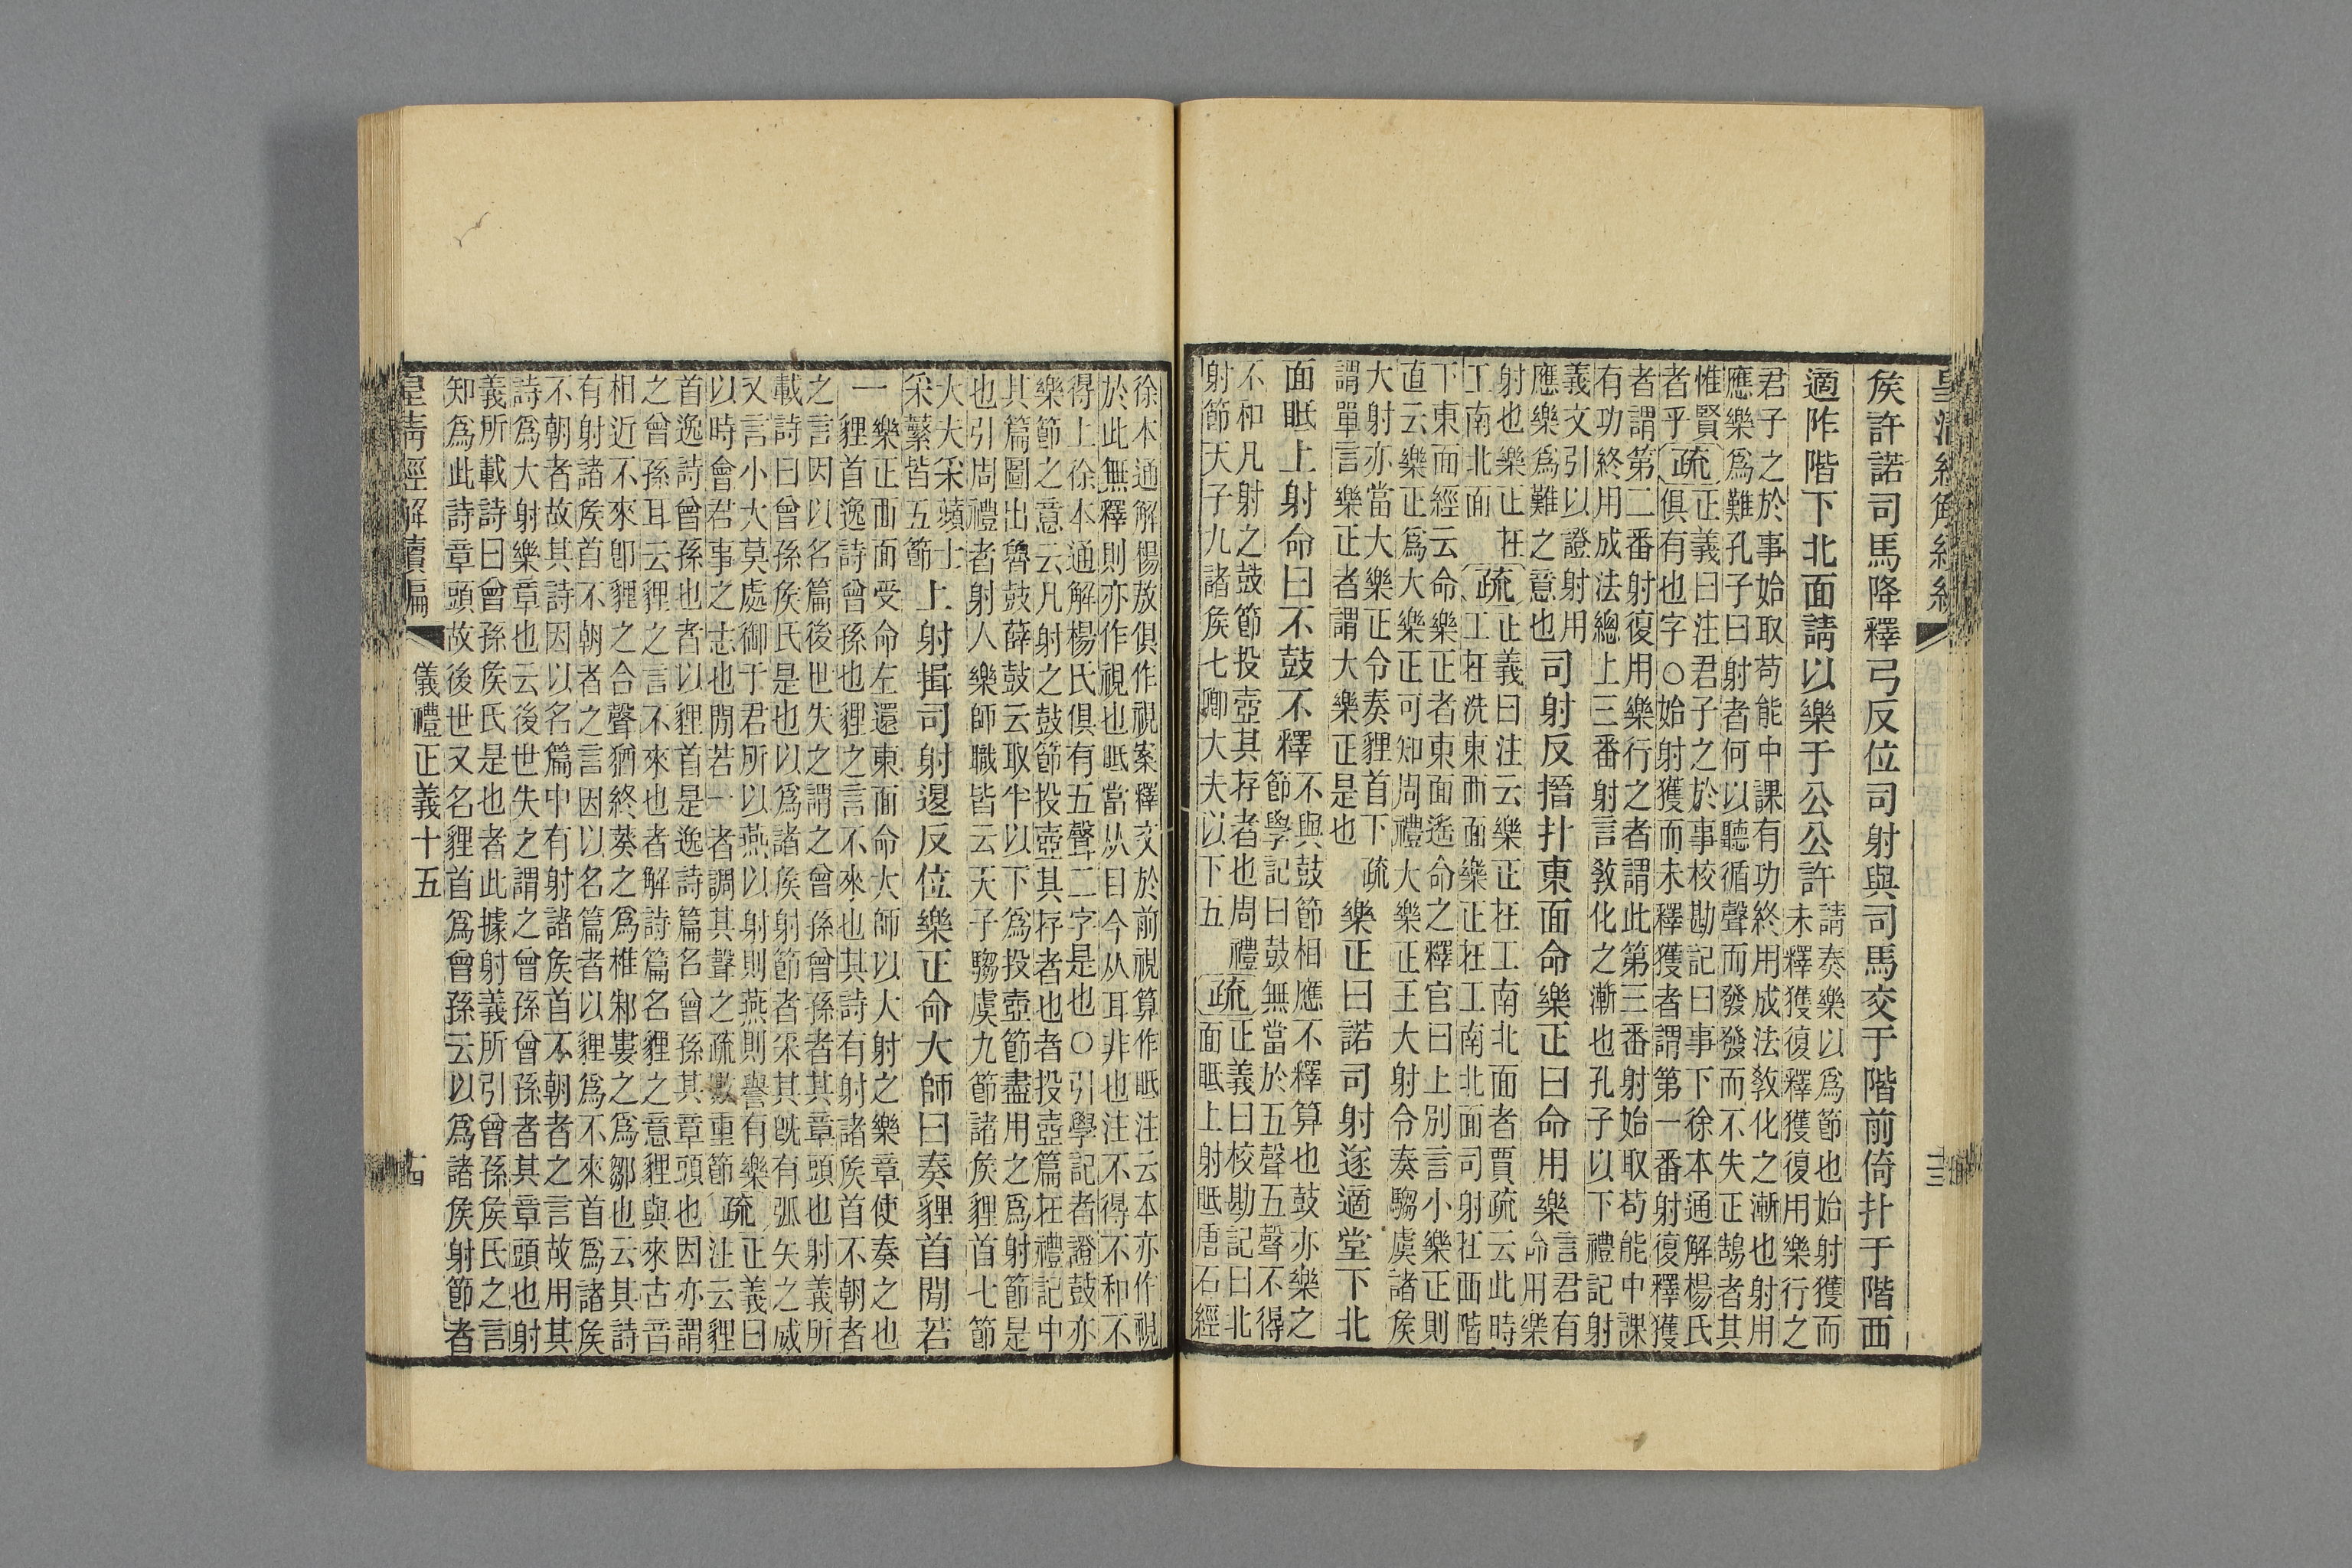 矦許諾司馬降釋弓反位司射與司馬交于階前倚扑于階西
適阼階下北面請以樂于公公許
請奏樂以爲節也始射獲而
未釋獲復釋獲復用樂行之
君子之於事始取苟能中課有功終用成法敎化之漸也射用
應樂爲難孔子曰射者何以聽循聲而發發而不失正鵠者其
惟賢
者乎
疏
正義曰注君子之於事校勘記曰事下徐本通解楊氏
俱有也字○始射獲而未釋獲者謂第一番射復釋獲
者謂第二番射復用樂行之者謂此第三番射始取苟能中課
有功終用成法總上三番射言敎化之漸也孔子以下禮記射
義文引以證射用
應樂爲難之意也
司射反搢扑東面命樂正曰命用樂
言君有
命用樂
射也樂正在
工南北面
疏
正義曰注云樂正在工南北面者賈疏云此時
工在洗東西面樂正在工南北面司射在西階
下東面經云命樂正者東面遙命之釋官曰上別言小樂正則
直云樂正爲大樂正可知周禮大樂正王大射令奏騶虞諸矦
大射亦當大樂正令奏貍首下疏
謂單言樂正者謂大樂正是也
樂正曰諾司射遂適堂下北
面眡上射命曰不鼓不釋
不與鼓節相應不釋算也鼓亦樂之
節學記曰鼓無當於五聲五聲不得
不和凡射之鼓節投壺其存者也周禮
射節天子九諸矦七卿大夫以下五
疏
正義曰校勘記曰北
面眡上射眡唐石經
徐本通解楊敖俱作視案釋文於前視算作眡注云本亦作視
於此無釋則亦作視也眡當从目今从耳非也注不得不和不
得上徐本通解楊氏俱有五聲二字是也○引學記者證鼓亦
樂節之意云凡射之鼓節投壺其存者也者投壺篇在禮記中
其篇圖出魯鼓薛鼓云取半以下爲投壺節盡用之爲射節是
也引周禮者射人樂師職皆云天子騶虞九節諸矦貍首七節
大夫采蘋士
采蘩皆五節
上射揖司射退反位樂正命大師曰奏貍首閒若
一
樂正西面受命左還東面命大師以大射之樂章使奏之也
貍首逸詩曾孫也貍之言不來也其詩有射諸矦首不朝者
之言因以名篇後世失之謂之曾孫曾孫者其章頭也射義所
載詩曰曾孫矦氏是也以爲諸矦射節者采其旣有弧矢之威
又言小大莫處御于君所以燕以射則燕則譽有樂
以時會君事之志也閒若一者調其聲之疏數重節
疏
正義曰
注云貍
首逸詩曾孫也者以貍首是逸詩篇名曾孫其章頭也因亦謂
之曾孫耳云貍之言不來也者解詩篇名貍之意貍與來古音
相近不來卽貍之合聲猶終葵之爲椎邾婁之爲鄒也云其詩
有射諸矦首不朝者之言因以名篇者以貍爲不來首爲諸矦
不朝者故其詩因以名篇中有射諸矦首不朝者之言故用其
詩爲大射樂章也云後世失之謂之曾孫曾孫者其章頭也射
義所載詩曰曾孫矦氏是也者此據射義所引曾孫矦氏之言
知爲此詩章頭故後世又名貍首爲曾孫云以爲諸矦射節者
皇清經解續編
儀禮正義十五
十四